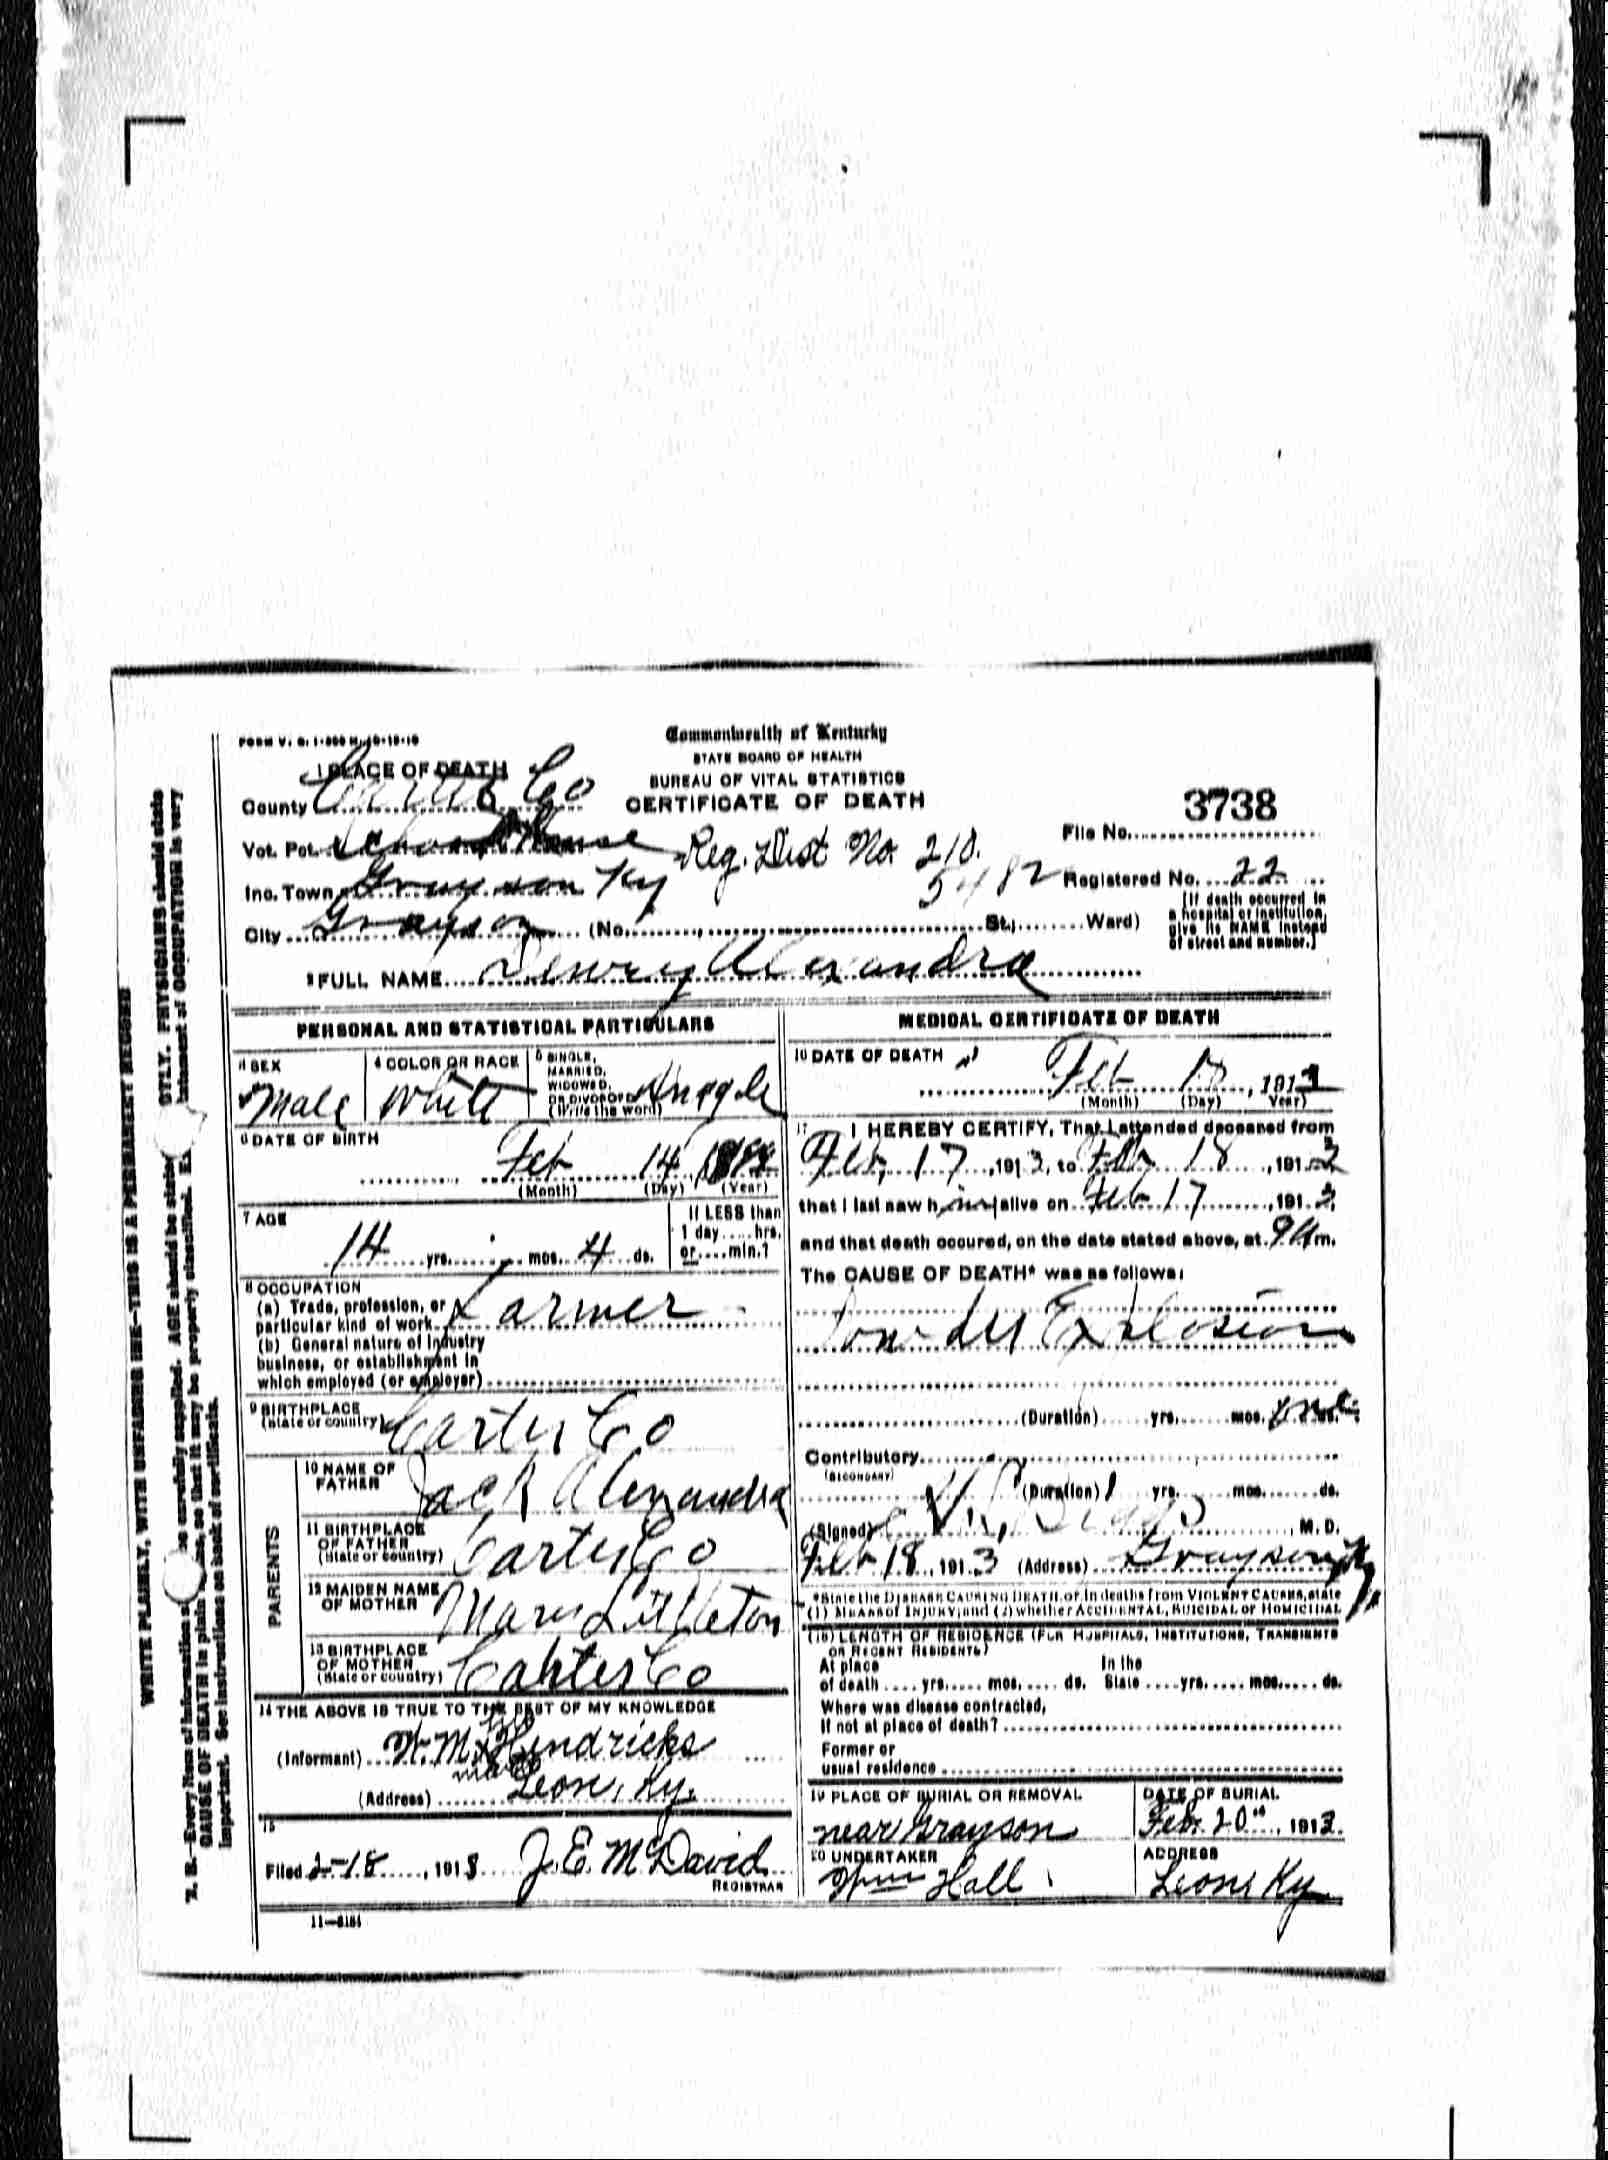 FORM V. S. 1-500 M. 10-18-10
Commonwealth of Kentucky
STATE BOARD OF HEALTH
BUREAU OF VITAL STATISTICS
CERTIFICATE OF DEATH
1 PLACE OF DEATH
County Carter Co
Vot. Pct. School House
Reg. Dist No. 210.
5482
File No. 3738
Inc. Town Grayson Ky
Registered No. 22
City Grayson (No. St.; Ward)
[If death occurred in
a hospital or institution,
give its NAME instead
of street and number.]
2 FULL NAME Dewey Alexandra
PERSONAL AND STATISTICAL PARTICULARS
3 SEX
Male
4 COLOR OR RACE
White
5 SINGLE,
MARRIED,
WIDOWED,
OR DIVORCED
(Write the word)
Single
6 DATE OF BIRTH
Feb 14
(Month) (Day) (Year)
7 AGE
14 yrs. mos. 4 ds.
If LESS than
1 day hrs.
or min.?
8 OCCUPATION
(a) Trade, profession, or
particular kind of work Farmer
(b) General nature of industry
business, or establishment in
which employed (or employer)
9 BIRTHPLACE
(State or country) Carter Co
PARENTS
10 NAME OF
FATHER
Jack Alexandra
11 BIRTHPLACE
OF FATHER
(State or country) Carter Co
12 MAIDEN NAME
OF MOTHER
Mary Littleton
13 BIRTHPLACE
OF MOTHER
(State or country) Carter Co
14 THE ABOVE IS TRUE TO THE BEST OF MY KNOWLEDGE
(Informant) W. M. Hendricks
his
mark
(Address) Leon, Ky.
15
Filed 2-18, 1913 J. E. McDavid
REGISTRAR
11—5184
MEDICAL CERTIFICATE OF DEATH
16 DATE OF DEATH
Feb 191
(Month) (Day) Year)
17 I HEREBY CERTIFY, That I attended deceased from
Feb, 17, 1913, to Feb 18, 1913
that I last saw him alive on Feb 17, 1913,
and that death occured, on the date stated above, at 9 A m.
The CAUSE OF DEATH* was as follows:
Powder Explosion
(Duration) yrs. mos. ds.
Contributory
(SECONDARY)
(Duration) yrs. mos. ds.
(Signed) M. D.
Feb 18, 1913 (Address) Grayson Ky,
*State the DISEASE CAUSING DEATH, or, in deaths from VIOLENT CAUSES, state
(1) MEANS of INJURY; and (2) whether ACCIDENTAL, SUICIDAL or HOMICIDAL
(18) LENGTH OF RESIDENCE (FOR HOSPITALS, INSTITUTIONS, TRANSIENTS
OR RECENT RESIDENTS)
At place In the
of death yrs. mos. ds. State yrs. mos. ds.
Where was disease contracted,
If not at place of death?
Former or
usual residence
19 PLACE OF BURIAL OR REMOVAL
near Grayson
DATE OF BURIAL
Feb. 20", 1913.
20 UNDERTAKER
Wm Hall
ADDRESS
Leon, Ky
WRITE PLAINLY, WITH UNFADING INK—THIS IS A PERMANENT RECORD
N. B.—Every item of information be carefully supplied. AGE should be stated CTLY. PHYSICIANS should state
CAUSE OF DEATH in plain so that it may be properly classified. of OCCUPATION is very
important. See instructions on back of certificate.